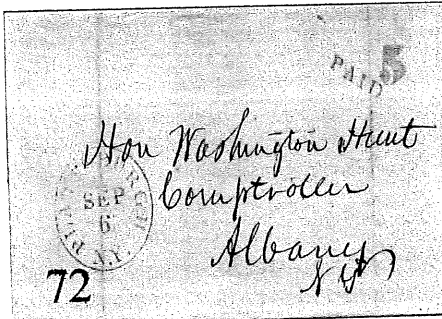 PAID 5
Hon Washington Hunt
Comptroller
Albany
N.Y.
SEP
6
N.Y.
72